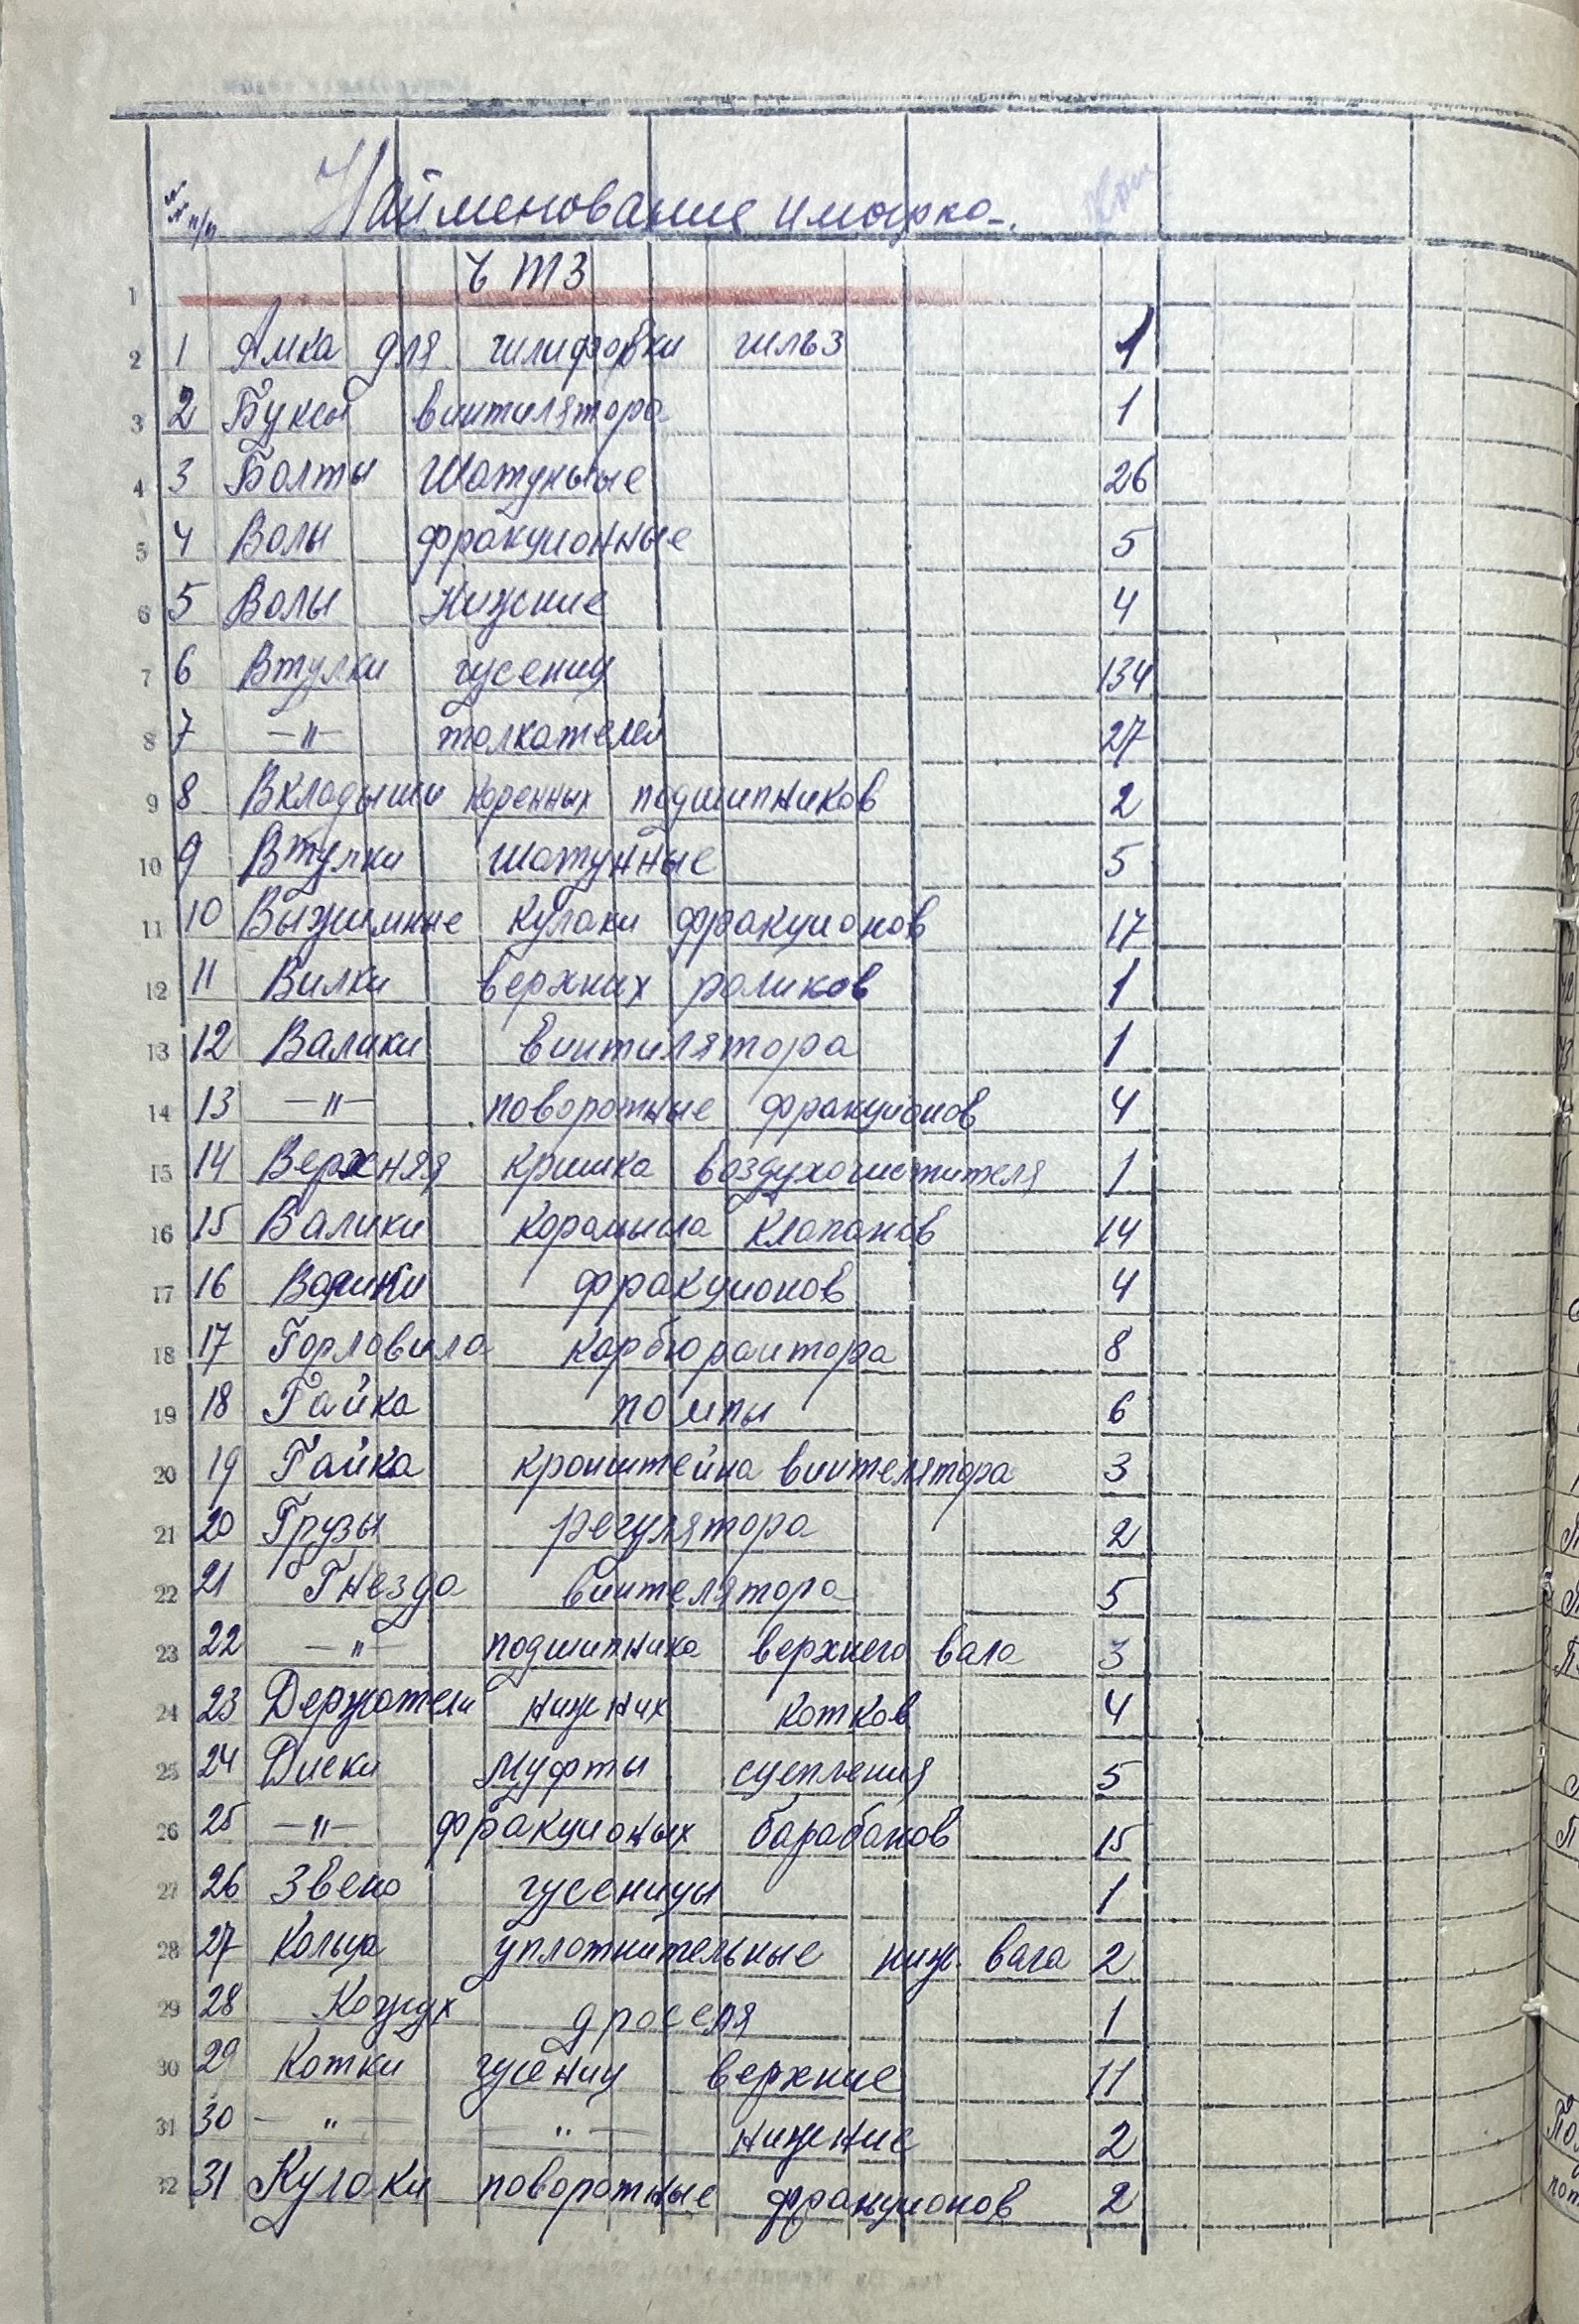 №№ п/п Найменование и марка. Кол
ЧТЗ
1
2 1 Амка для шлифовки гильз 1
3 2 Буксы винтилятора 1
4 3 Болты Шатуные 26
5 4 Валы фракционные 5
6 5 Валы нижние 4
7 6 Втулки гусениц 134
8 7 —"— толкателей 27
9 8 Вкладыши коренных подшипников 2
10 9 Втулки шатунные 5
11 10 Выжимные кулаки фракционов 17
12 11 Вилки верхних роликов 1
13 12 Валики винтилятора 1
14 13 —"— поворотные фракционов 4
15 14 Верхняя кришка воздухочистителя 1
16 15 Валики коромысла клапанов 14
17 16 фракционов 4
18 17 Горловина карбюраитора 8
19 18 Гайка помпы 6
20 19 Гайка кронштейна винтелятора 3
21 20 Грузы регулятора 2
22 21 Гнезда винтелятора 5
23 22 —"— подшипника верхнего вала 3
24 23 Держатели нижних котков 4
25 24 Диски муфты сцепления 5
26 25 —"— фракционых барабанов 15
27 26 Звено гусеницы 1
28 27 Кольца уплотнительные ниж. вала 2
29 28 Кожух дроселя 1
30 29 Котки гусениц верхние 11
31 30 —"— —"— нижние 2
32 31 Кулаки поворотные фракционов 2